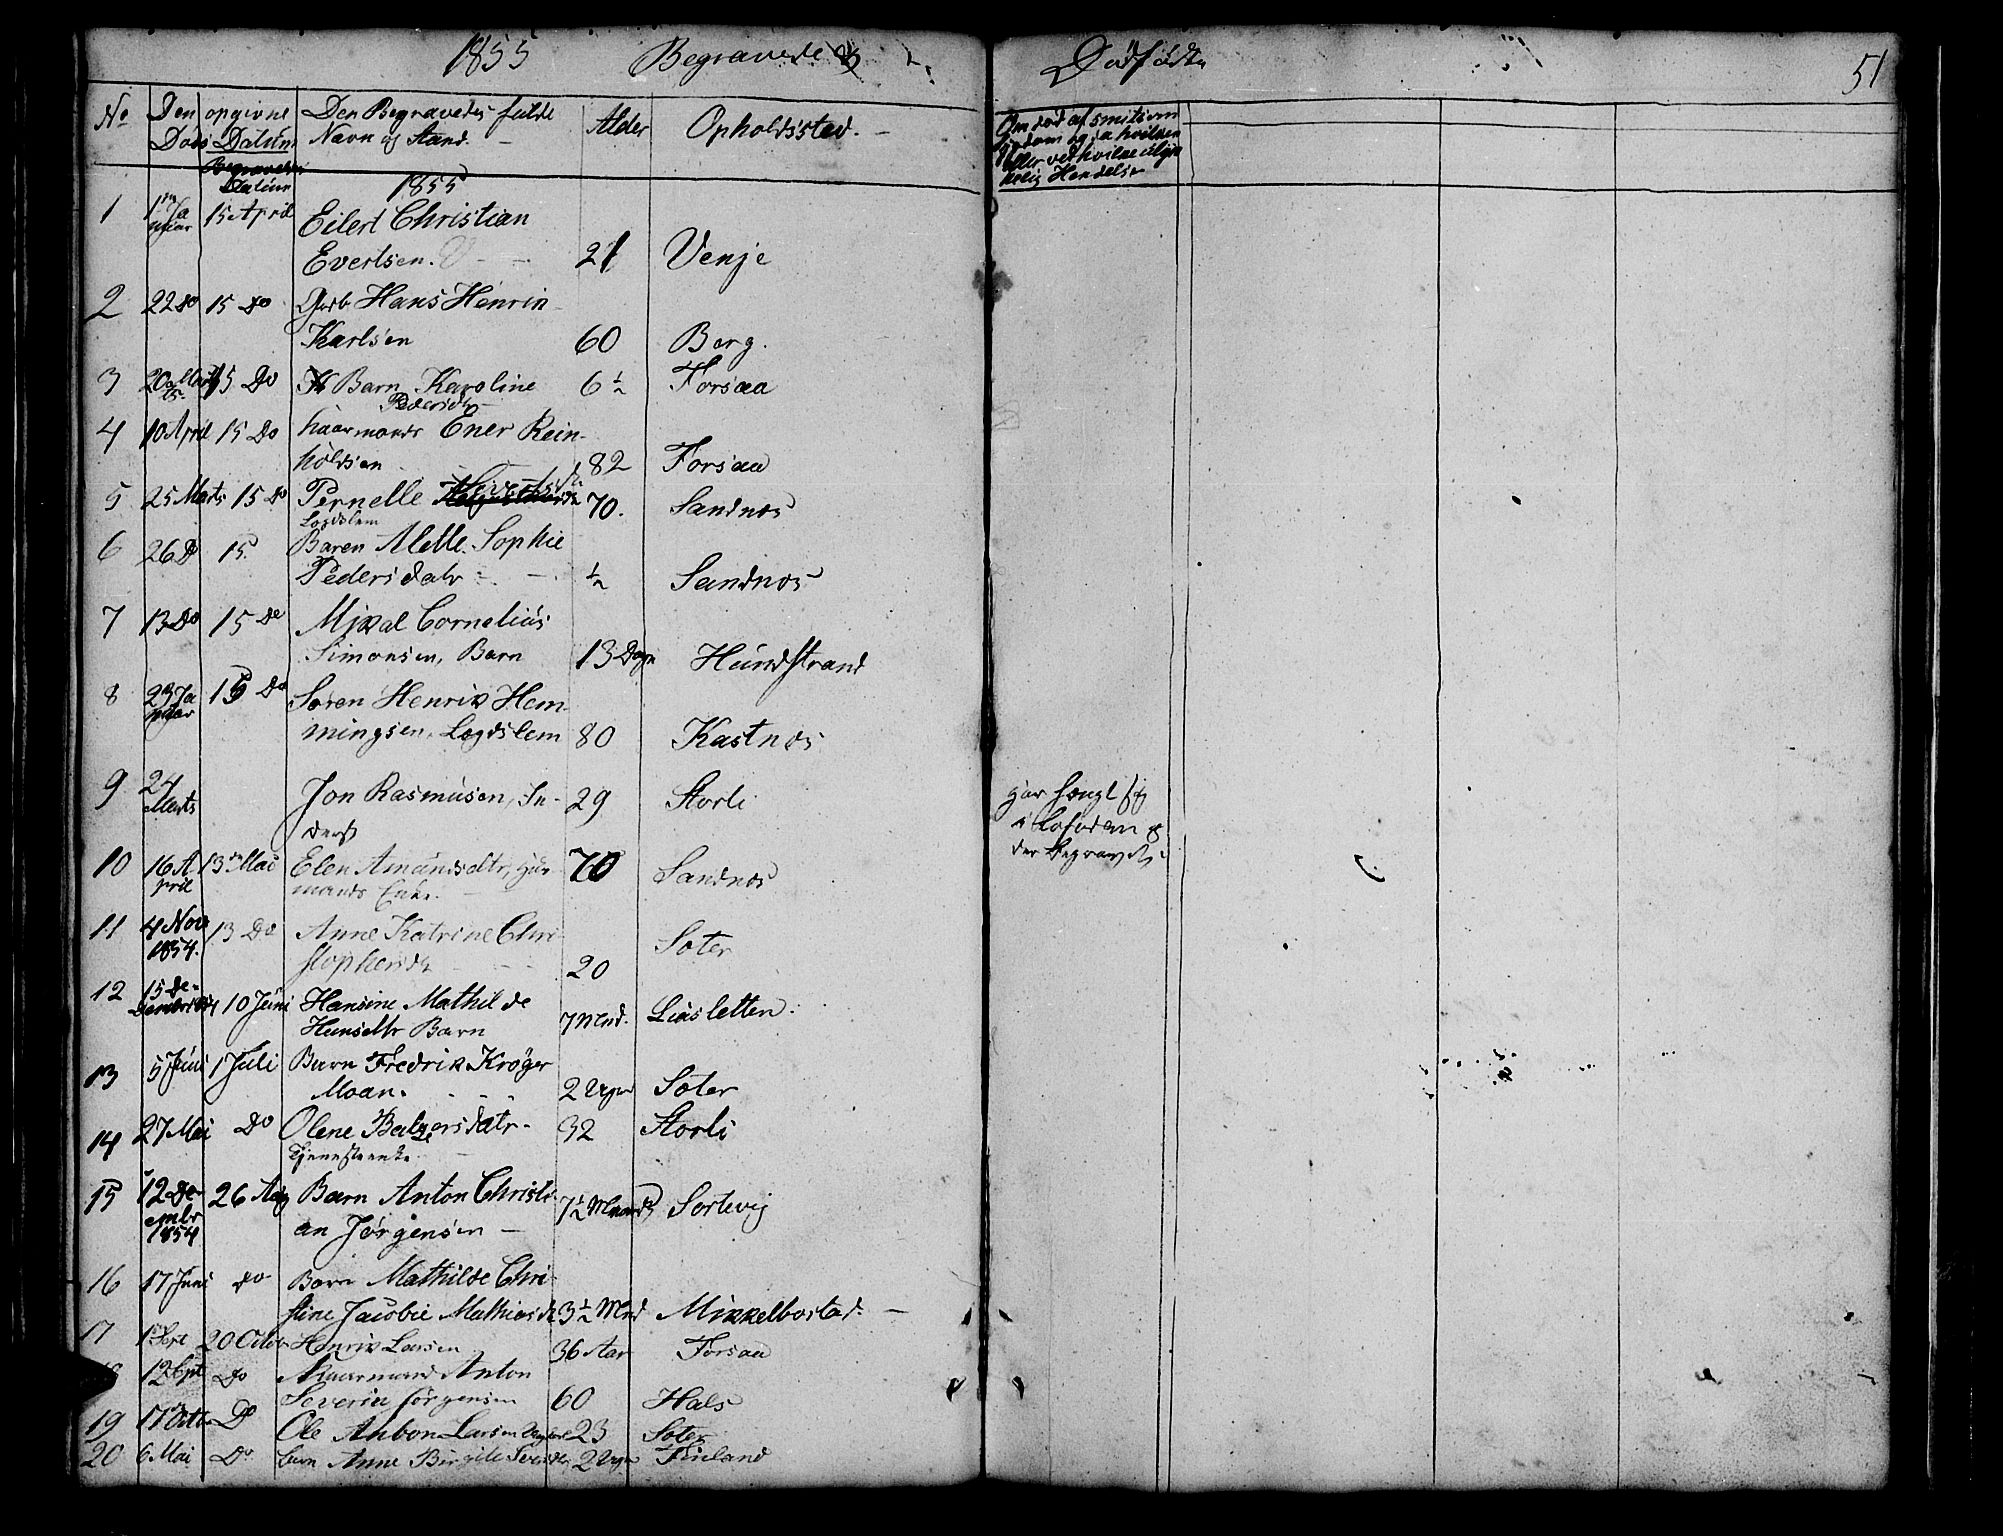 1855 Begravede Dødfødte 51
No Den opgivne Døds Datum Begravelses Datum Den Begravedes fulde Navn og Stand. Alder Opholdssted. Om død af smitsom
Sygdom og da hvilken
eller ved hvilke ulyk
kelig Hendelse
1855
1 1ste Ja
nuar 15 April Eilert Christian
Evertsen. 21 Venje
2 22 Do 15 Do Hans Henrik
Karlsen 60 Berg.
3 20 Marts 15 Do Barn Karoline
Pedersdtr 6½ Forsaa
4 10 April 15 Do haarmands Ener Rein-
holdsen 82 Forsaa
5 25 Marts 15 Do Pernelle
Lægdslem 70. Sandnes
6 26 D 15. Baren Alette Sophie
Pedersdatr ½ Sandnes
7 13 Do 15 Do Mikal Cornelius
Simonsen, Barn 13 Dage Hundstrand
8 23 Ja
nuar 15 Do Søren Henrik Hem-
mingsen, Lægdslem 80 Kastnes
9 24
Marts Jon Rasmusen, In-
derst 29 Storli har hængt sig
i Lofoden og
der begravet
10 16 A
pril 13de Mai Elen Amundsdtr, hus-
mands Enke. 70 Sandnes
11 4 Nov
1854. 13 Do Anne Katrine Chri-
stophersdtr 20 Soter
12 15 De-
cember 1854 10 Juni Hansine Mathilde
Hansdtr Barn 7 Mnd. Liasletten.
13 5 Juni 1 Juli Barn Fredrik Krøger
Moan. 2 Uger Soter
14 27 Mai Do Olene Balzersdatr-
Tjenesteenke 32 Storli
15 12 De-
cembr
1854 26 Aug Barn Anton Christi-
an Jørgensen 7½ Maaneder Sortevig
16 17 Juni Do Barn Mathilde Chri-
stine Jacobie Mathiasdtr 3½ Mnd Mikkelbostad.
17 1 Sept 20 Octbr Henrik Larsen 36 Aar Forsaa
18 12 Sept Do Anton
Severin Jørgensen 60 Hals
19 17 Octbr Do Ole Anton Larsen Ungkarl 23 Soter
20 6 Mai Do barn Anne Birgite 2 Uger Finland